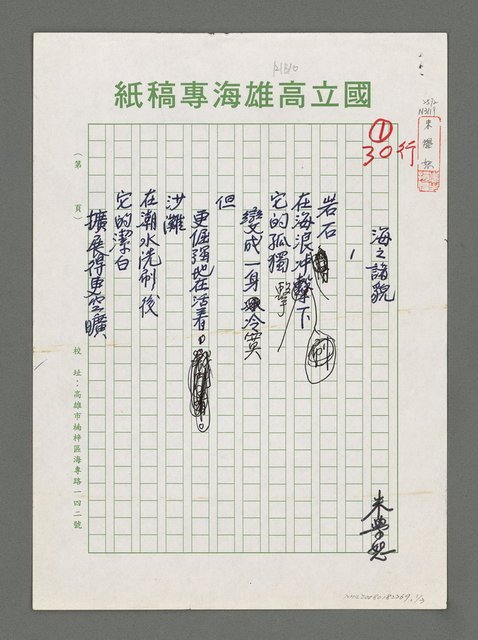 國立高雄海專稿紙
①
30行
海之諸貌
朱學恕
岩石
在海浪冲擊下
它的孤獨
擊
變成一身冷寞
但
更倔強地在活着。
沙灘
在潮水洗刷後
它的潔白
擴展得更空曠
(第 頁)
校址：高雄市楠梓區海專路一四二號